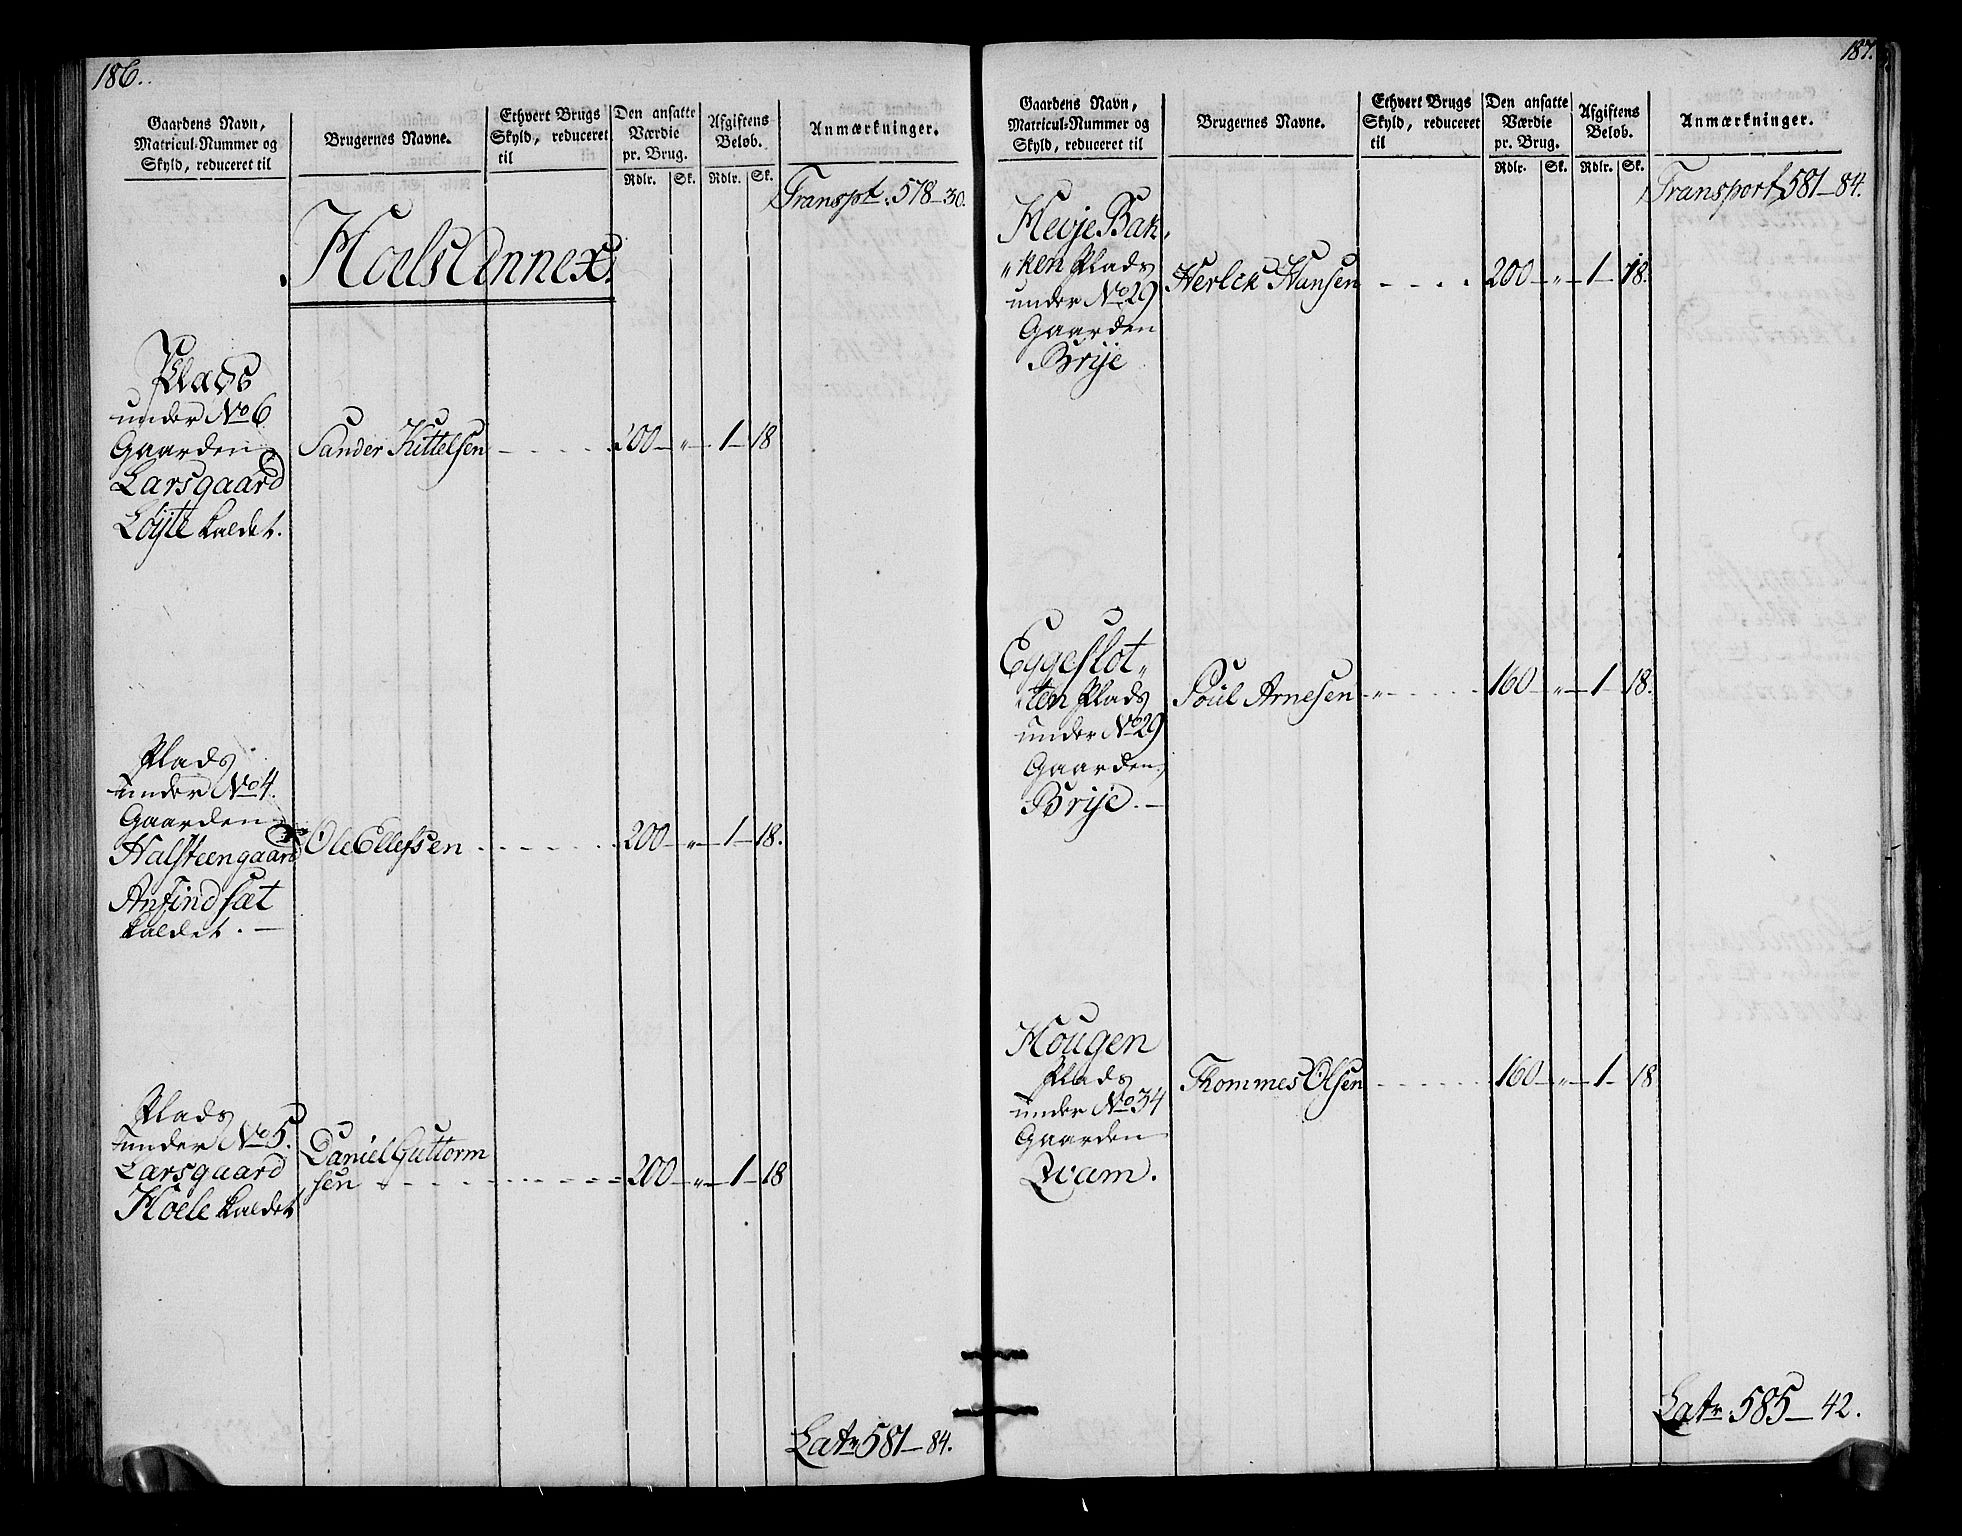 186.
Gaardens Navn,
Matricul-Nummer og
Skyld, reduceret til
Brugernes Navne.
Ethvert Brugs
Skyld, reduceret
til
Den ansatte
Værdie
pr. Brug.
Afgiftens
Beløb.
Anmærkninger.
Rdlr. Sk. Rdlr. Sk.
Transpt. 578-30.
Hoels Annex.
Plads
under No 6
Gaarden
Larsgaard
Løjte kaldet.
Sander Kittelsen - - - - 200 - " - 1 - 18
Plads
under No 4.
Gaarden
Halsteengaard
Anfindsæt
kaldet. -
Ole Ellefsen - - - - 200 - " - 1 - 18.
Plads
under No 5.
Larsgaard
Hoele kaldet
Daniel Guttorm
sen - - - - 200 - " - 1 - 18
Latr 581 - 84.
187.
Gaardens Navn,
Matricul-Nummer og
Skyld, reduceret til
Brugernes Navne.
Ethvert Brugs
Skyld, reduceret
til
Den ansatte
Værdie
pr. Brug.
Afgiftens
Beløb.
Anmærkninger.
Rdlr. Sk. Rdlr. Sk.
Transport 581-84.
Heije Bak
"ken Plads
under No 29
Gaarden
Brije
Herlek Hansen - - - - 200 - " - 1 - 18.
Eggeslot"
"ten Plads
under No 29
Gaarden
Brije. -
Poul Arnesen - " - - - - 160 - " - 1 - 18.
Hougen
Plads
under No 34
Gaarden
Qvam.
Thommes Olsen - - - - 160 - " - 1 - 18
Latr 585 - 42.